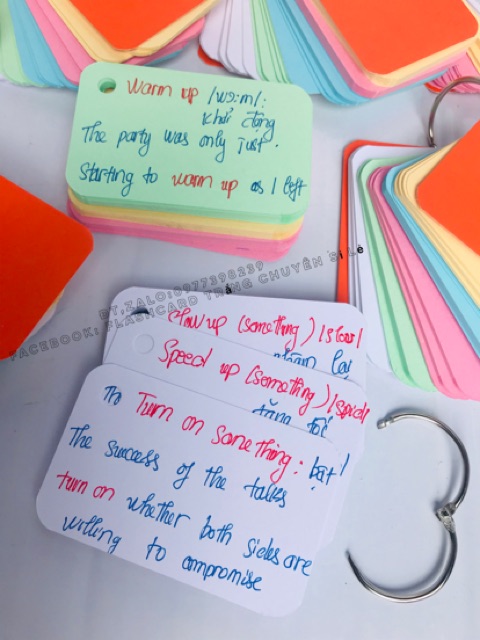 warm up /wɔ:m/:
khởi động
The party was only just
starting to warm up as I left
BY, ZALO:0977398239
FACEBOOK: FLASHCARD TRẮNG CHUYÊN SỈ LẺ
slow up (something) /sləʊ/
chậm lại
Speed up (something) /spid
tăng tốc
Turn on something: bật
The success of the talks
turn on whether both sides are
willing to compromise